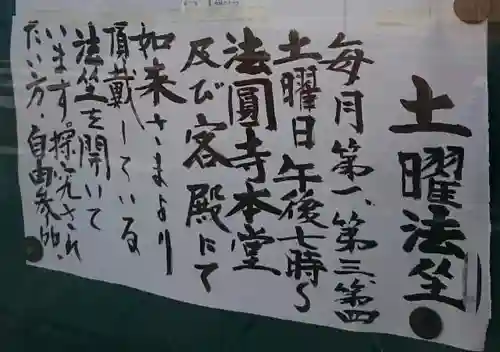 土曜法坐
毎月第一、第三、第四
土曜日 午後七時〜
法圓寺本堂
及び客殿にて
如来さまより
頂戴している
法坐を開いて
います。探究され
たい方、自由参聴、